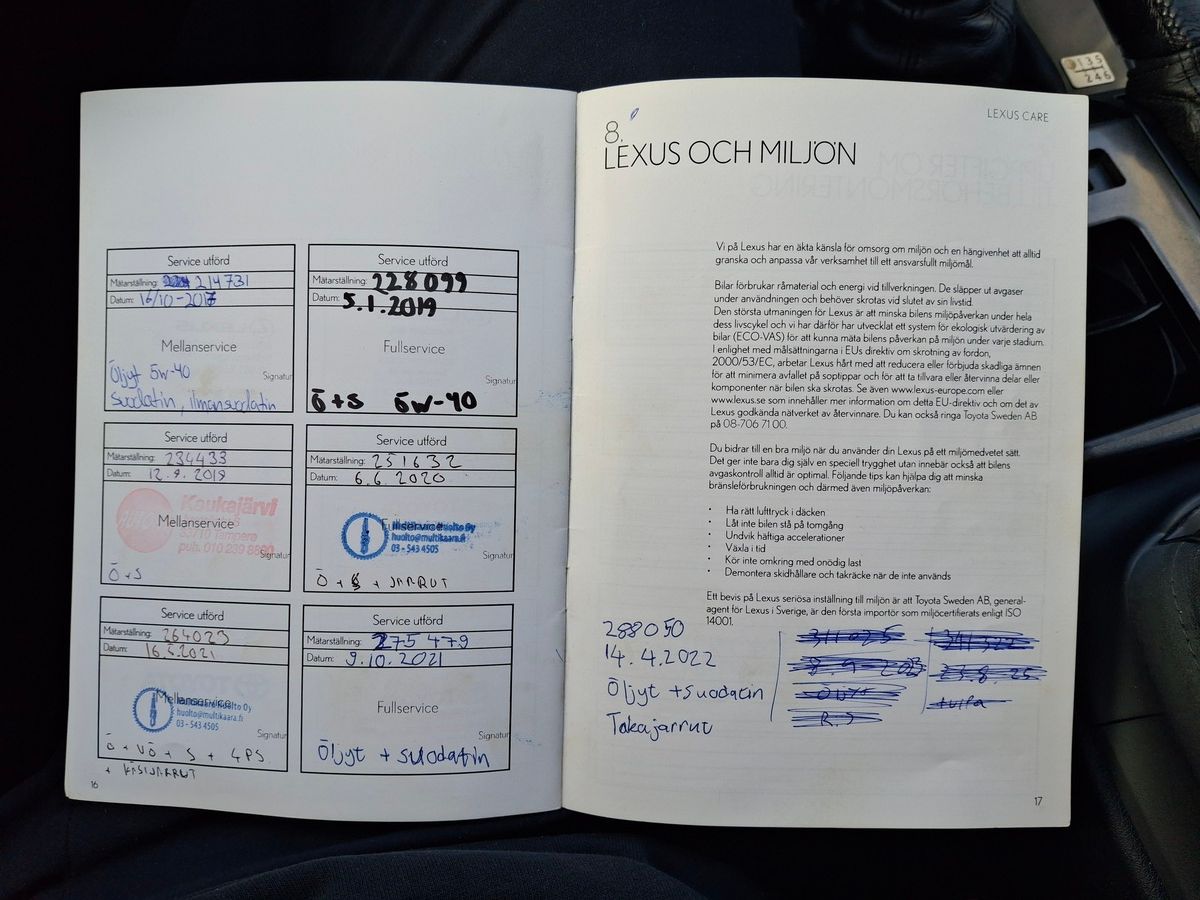 Service utförd
Mätarställning: 214731
Datum: 16/10-2017
Mellanservice
Signatur
Öljyt 5w-40
suodatin, ilmansuodatin
Service utförd
Mätarställning: 228099
Datum: 5.1.2019
Fullservice
Signatur
Ö+S 5w-40
Service utförd
Mätarställning: 234433
Datum: 12.9.2019
Kaukajärvi
Mellanservice
33710 Tampere
puh. 010 239 8800
Signatur
Ö+S
Service utförd
Mätarställning: 251632
Datum: 6.6.2020
Fullservice
Huolto Oy
huolto@multikaara.fi
03 - 543 4505
Signatur
Ö + S + JARRUT
Service utförd
Mätarställning: 264023
Datum: 16.5.2021
Mellanservice
Huolto Oy
huolto@multikaara.fi
03 - 543 4505
Signatur
Ö + VÖ + S + 4PS
+ KÄSIJARRUT
Service utförd
Mätarställning: 275479
Datum: 9.10.2021
Fullservice
Signatur
Öljyt + suodatin
16
LEXUS CARE
8.
LEXUS OCH MILJÖN
Vi på Lexus har en äkta känsla för omsorg om miljön och en hängivenhet att alltid
granska och anpassa vår verksamhet till ett ansvarsfullt miljömål.
Bilar förbrukar råmaterial och energi vid tillverkningen. De släpper ut avgaser
under användningen och behöver skrotas vid slutet av sin livstid.
Den största utmaningen för Lexus är att minska bilens miljöpåverkan under hela
dess livscykel och vi har därför har utvecklat ett system för ekologisk utvärdering av
bilar (ECO-VAS) för att kunna mäta bilens påverkan på miljön under varje stadium.
I enlighet med målsättningarna i EUs direktiv om skrotning av fordon,
2000/53/EC, arbetar Lexus hårt med att reducera eller förbjuda skadliga ämnen
för att minimera avfallet på soptippar och för att ta tillvara eller återvinna delar eller
komponenter när bilen ska skrotas. Se även www.lexus-europe.com eller
www.lexus.se som innehåller mer information om detta EU-direktiv och om det av
Lexus godkända nätverket av återvinnare. Du kan också ringa Toyota Sweden AB
på 08-706 71 00.
Du bidrar till en bra miljö när du använder din Lexus på ett miljömedvetet sätt.
Det ger inte bara dig själv en speciell trygghet utan innebär också att bilens
avgaskontroll alltid är optimal. Följande tips kan hjälpa dig att minska
bränsleförbrukningen och därmed även miljöpåverkan:
• Ha rätt lufttryck i däcken
• Låt inte bilen stå på tomgång
• Undvik häftiga accelerationer
• Växla i tid
• Kör inte omkring med onödig last
• Demontera skidhållare och takräcke när de inte används
Ett bevis på Lexus seriösa inställning till miljön är att Toyota Sweden AB, general-
agent för Lexus i Sverige, är den första importör som miljöcertifierats enligt ISO
14001.
288050
14.4.2022
Öljyt + suodatin
Takajarrut
17
135
246